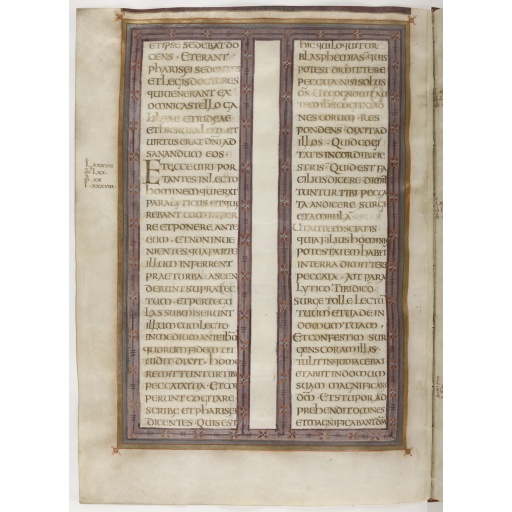 ETIPSE SEDEBAT DO
CENS · ETERANT
PHARISEI SEDENTES
ET LEGIS DOCTORES
QUI UENERANT EX
OMNI CASTELLO GA
LILEAE ET IUDEAE
ET HIERUSALEM · ET
UIRTUS ERAT DNI AD
SANANDUM EOS ·
ET ECCE UIRI POR
TANTES IN LECTO
HOMINEM QUI ERAT
PARALYTICUS ET QUE
REBANT EUM INFER
RE ET PONERE ANTE
EUM · ET NON INUE
NIENTES QUA PARTE
ILLUM INFERRENT
PRAE TURBA · ASCEN
DERUNT SUPRA TEC
TUM · ET PER TEGU
LAS SUBMISERUNT
ILLUM CUM LECTO
IN MEDIUM ANTE IHM
QUORUM FIDEM UT
UIDIT DIXIT · HOMO
REMITTUNTUR TIBI
PECCATA TUA · ET COE
PERUNT COGITARE
SCRIBE ET PHARISEI
DICENTES · QUIS EST
HIC QUI LOQUITUR
BLASPHEMIAS · QUIS
POTEST DIMITTERE
PECCATA NISI SOLUS
DS · UT COGNOUIT AU
TEM IHS COGITATIO
NES EORUM · RES
PONDENS DIXIT AD
ILLOS · QUID COGI
TATIS IN CORDIBUS UE
STRIS · QUID EST FA
CILIUS DICERE DIMIT
TUNTUR TIBI PECCA
TA AN DICERE SURGE
ET AMBULA
UT AUTEM SCIATIS
QUIA FILIUS HOMINIS
POTESTATEM HABET
IN TERRA DIMITTERE
PECCATA · AIT PARA
LYTICO TIBI DICO
SURGE TOLLE LECTUM
TUUM ET UADE IN
DOMUM TUAM ·
ET CONFESTIM SUR
GENS CORAM ILLIS
TULIT IN QUO IACEBAT
ET ABIIT IN DOMUM
SUAM MAGNIFICANS
DM · ET STUPOR AD
PREHENDIT OMNES
ET MAGNIFICABANT DM